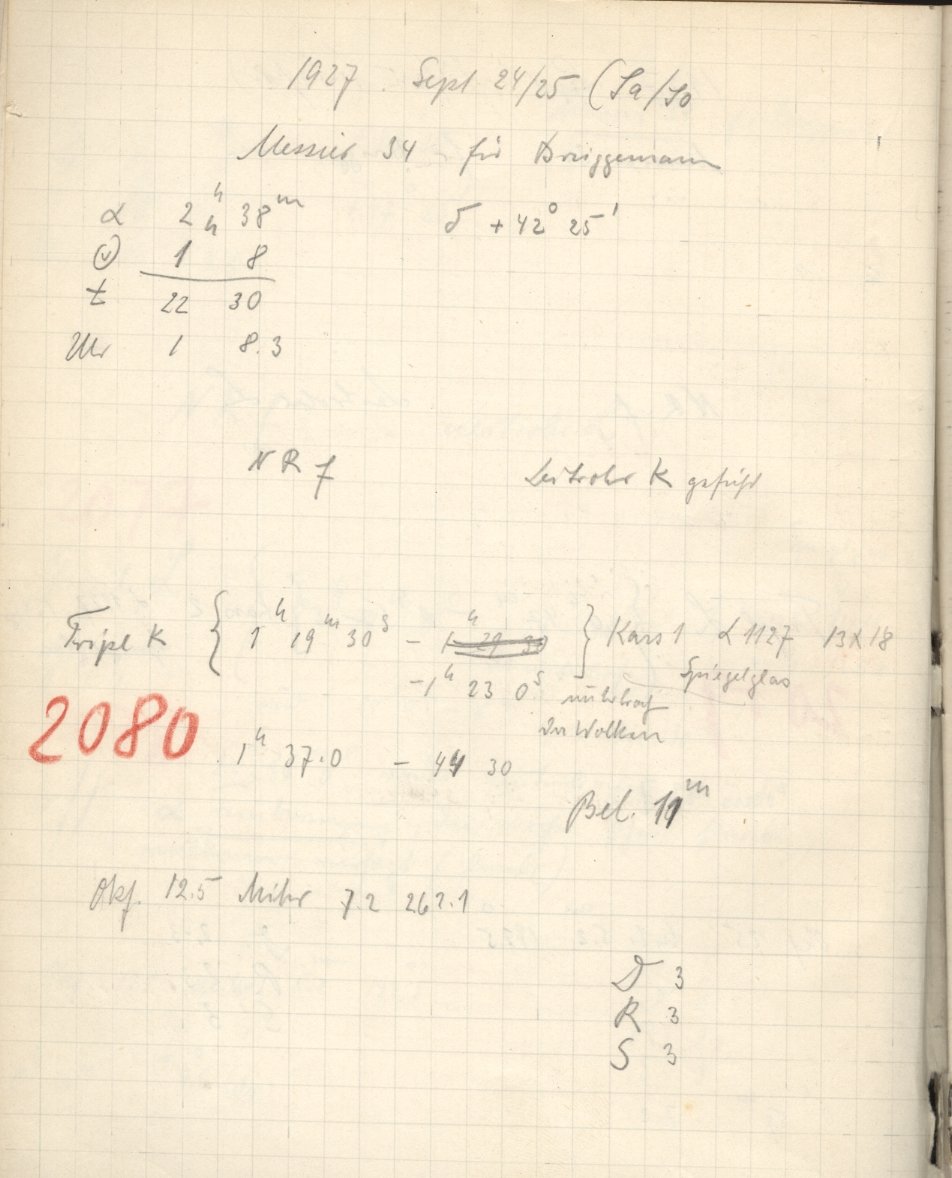 1927 Sept 24/25 (Sa/So
Messier 34 für Brüggemann
α 2h 38m δ +42° 25'
1h 8
t 22 30
Uhr 1 8.3
N R f Leitrohr K geführt
Tripl K { 1h 19m 30s - 1h 29 30 } Kass 1 L 1127 13x18
-1h 23 0s Spiegelglas
unterbrach
der Wolken
2080 1h 37.0 - 44 30
Bel. 11m
Okf. 12.5 Mikr 7.2 262.1
D 3
R 3
S 3